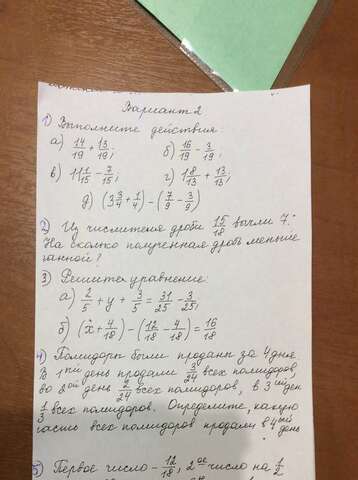 Вариант 2
1) Выполните действия:
а) 14/19 + 13/19; б) 16/19 - 3/19;
в) 11 1/15 - 7/15; г) 18/13 + 13/13;
д) (3 3/4 + 1/4) - (7/9 - 3/9)
2) Из числителя дроби 15/18 вычли 7.
На сколько полученная дробь меньше
данной?
3) Решите уравнение:
а) 2/5 + y + 3/5 = 31/25 - 3/25;
б) (x + 4/18) - (12/18 - 4/18) = 16/18
4) Помидоры были проданы за 4 дня.
В 1ый день продали 3/24 всех помидоров,
во 2ой день 2/24 всех помидоров, в 3ий ден
1/3 всех помидоров. Определите, какую
часть всех помидоров продали в 4ый
день
5) Первое число - 12/18, 2ое число на 1/2